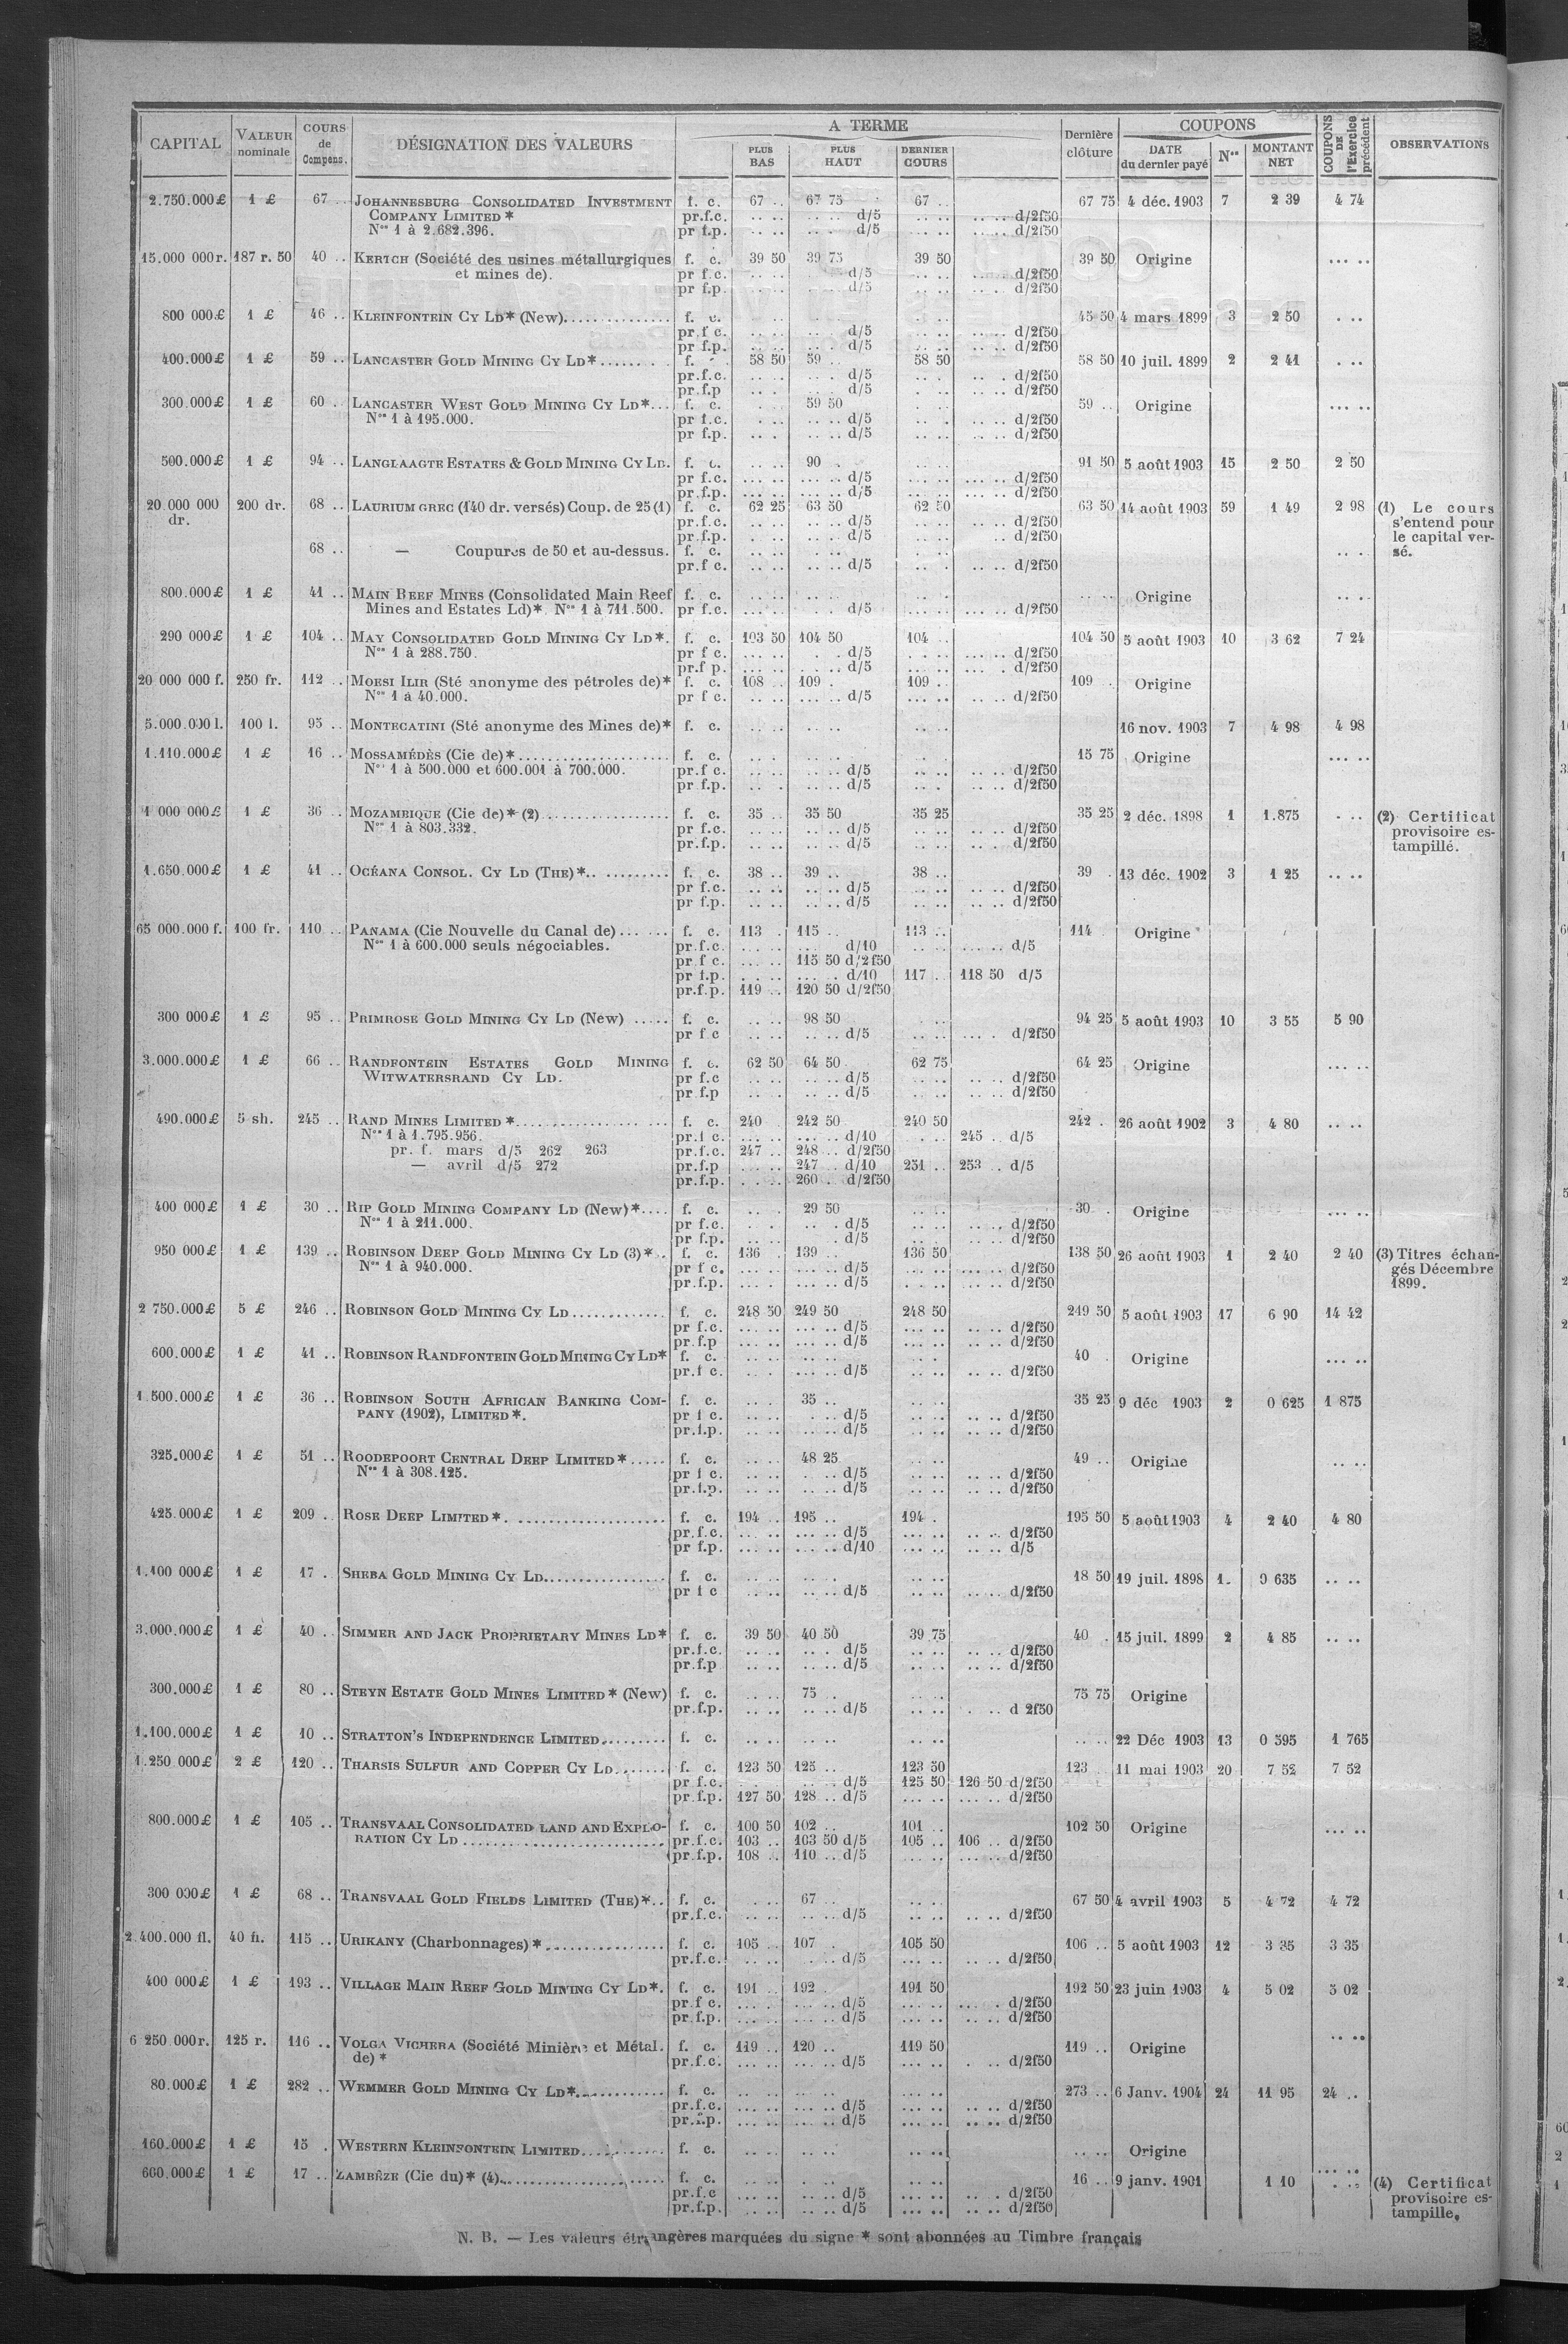 CAPITAL VALEUR nominale COURS de Compens. DÉSIGNATION DES VALEURS A TERME PLUS BAS PLUS HAUT DERNIER COURS Dernière clôture COUPONS DATE du dernier payé Nos MONTANT NET COUPONS DE l'Exercice précédent OBSERVATIONS
2.750.000£ 1 £ 67 .. JOHANNESBURG CONSOLIDATED INVESTMENT f. c. 67 .. 67 75 67 .. 67 75 4 déc. 1903 7 2 39 4 74
COMPANY LIMITED * pr.f.c. .. .. .. .. d/5 .. .. .. .. d/2f50
Nos 1 à 2.682.396. pr f.p. .. .. .. . d/5 .. .. .. .. d/2f50
15.000 000r. 187 r. 50 40 .. KERTCH (Société des usines métallurgiques f. c. 39 50 39 75 39 50 39 50 Origine ... ..
et mines de). pr f.c. d/5 d/2f50
pr f.p. d/5 d/2f50
800 000£ 1 £ 46 .. KLEINFONTEIN CY LD* (New). f. c. 45 50 4 mars 1899 3 2 50
pr.f c. d/5 d/2f50
pr f.p. d/5 d/2f50
400.000£ 1 £ 59 .. LANCASTER GOLD MINING CY LD* f. 58 50 59 .. 58 50 58 50 10 juil. 1899 2 2 41
pr.f.c. d/5 d/2f50
pr.f.p d/5 d/2f50
300.000£ 1 £ 60 .. LANCASTER WEST GOLD MINING CY LD* f. c. 59 50 59 .. Origine
Nos 1 à 195.000. pr f.c. d/5 d/2f50
pr f.p. d/5 d/2f50
500.000£ 1 £ 94 .. LANGLAAGTE ESTATES & GOLD MINING CY LD. f. c. 90 91 50 5 août 1903 15 2 50 2 50
pr f.c. d/5 d/2f50
pr.f.p. d/5 d/2f50
20 000 000 200 dr. 68 .. LAURIUM GREC (140 dr. versés) Coup. de 25 (1) f. c. 62 25 63 50 62 50 63 50 14 août 1903 59 1 49 2 98 (1) Le cours
dr. pr.f.c. d/5 d/2f50 s'entend pour
pr.f.p. d/5 d/2f50 le capital ver-
68 .. — Coupures de 50 et au-dessus. f. c. sé.
pr.f c. d/5 d/2f50
800.000£ 1 £ 41 .. MAIN REEF MINES (Consolidated Main Reef f. c. Origine
Mines and Estates Ld)*. Nos 1 à 711.500. pr f.c. d/5 d/2f50
290 000£ 1 £ 104 .. MAY CONSOLIDATED GOLD MINING CY LD*. f. c. 103 50 104 50 104 .. 104 50 5 août 1903 10 3 62 7 24
Nos 1 à 288.750. pr f c. d/5 d/2f50
pr.f p. d/5 d/2f50
20 000 000 f. 250 fr. 112 .. MOESI ILIR (Sté anonyme des pétroles de)* f. c. 108 .. 109 . 109 .. 109 . Origine
Nos 1 à 40.000. pr f c. d/5 d/2f50
5.000.000 l. 100 l. 95 .. MONTECATINI (Sté anonyme des Mines de)* f. c. 16 nov. 1903 7 4 98 4 98
1.110.000£ 1 £ 16 .. MOSSAMÉDÈS (Cie de)* f. c. 15 75 Origine
Nos 1 à 500.000 et 600.001 à 700.000. pr.f c. d/5 d/2f50
pr f.p. d/5 d/2f50
1 000 000£ 1 £ 36 .. MOZAMBIQUE (Cie de)* (2) f. c. 35 .. 35 50 35 25 35 25 2 déc. 1898 1 1.875 (2) Certificat
Nos 1 à 803.332. pr f.c. d/5 d/2f50 provisoire es-
pr.f.p. d/5 d/2f50 tampillé.
1.650.000£ 1 £ 41 .. OCÉANA CONSOL. CY LD (THE)* f. c. 38 .. 39 .. 38 .. 39 . 13 déc. 1902 3 1 25
pr f.c. d/5 d/2f50
pr f.p. d/5 d/2f50
65 000.000 f. 100 fr. 110 .. PANAMA (Cie Nouvelle du Canal de) f. c. 113 . 115 .. 113 .. 114 Origine
Nos 1 à 600.000 seuls négociables. pr.f.c. d/10 d/5
pr.f c. 115 50 d/2f50
pr f.p. d/10 117 .. 118 50 d/5
pr.f.p. 119 .. 120 50 d/2f50
300 000£ 1 £ 95 .. PRIMROSE GOLD MINING CY LD (New) f. c. 98 50 94 25 5 août 1903 10 3 55 5 90
pr f c d/5 d/2f50
3.000.000£ 1 £ 66 .. RANDFONTEIN ESTATES GOLD MINING f. c. 62 50 64 50 62 75 64 25 Origine
WITWATERSRAND CY LD. pr f.c d/5 d/2f50
pr f.p d/5 d/2f50
490.000£ 5 sh. 245 .. RAND MINES LIMITED * f. c. 240 242 50 240 50 242 . 26 août 1902 3 4 80
Nos 1 à 1.795.956. pr.f c. d/10 245 .. d/5
pr. f. mars d/5 262 263 pr.f.c. 247 .. 248 .. d/2f50
— avril d/5 272 pr.f.p 247 .. d/10 251 .. 253 .. d/5
pr.f.p. 260 . d/2f50
400 000£ 1 £ 30 .. RIP GOLD MINING COMPANY LD (New)* f. c. 29 50 30 . Origine
Nos 1 à 211.000. pr f.c. d/5 d/2f50
pr f.p. d/5 d/2f50
950 000£ 1 £ 139 .. ROBINSON DEEP GOLD MINING CY LD (3)* f. c. 136 . 139 .. 136 50 138 50 26 août 1903 1 2 40 2 40 (3) Titres échan-
Nos 1 à 940.000. pr f c. d/5 d/2f50 gés Décembre
pr.f.p. d/5 d/2f50 1899.
2 750.000£ 5 £ 246 .. ROBINSON GOLD MINING CY LD f. c. 248 50 249 50 248 50 249 50 5 août 1903 17 6 90 14 42
pr f.c. d/5 d/2f50
pr f.p d/5 d/2f50
600.000£ 1 £ 41 .. ROBINSON RANDFONTEIN GOLD MINING CY LD* f. c. 40 . Origine
pr.f c. d/5 d/2f50
1.500.000£ 1 £ 36 .. ROBINSON SOUTH AFRICAN BANKING COM- f. c. 35 .. 35 25 9 déc 1903 2 0 625 1 875
PANY (1902), LIMITED *. pr f c. d/5 d/2f50
pr.f.p. d/5 d/2f50
325.000£ 1 £ 51 .. ROODEPOORT CENTRAL DEEP LIMITED * f. c. 48 25 49 .. Origine
Nos 1 à 308.125. pr f c. d/5 d/2f50
pr.f.p. d/5 d/2f50
425.000£ 1 £ 209 .. ROSE DEEP LIMITED * f. c. 194 .. 195 .. 194 . 195 50 5 août 1903 4 2 40 4 80
pr.f.c. d/5 d/2f50
pr f.p. d/10 d/5
1.100 000£ 1 £ 17 . SHEBA GOLD MINING CY LD f. c. 18 50 19 juil. 1898 1. 0 635
pr f c d/5 d/2f50
3.000.000£ 1 £ 40 .. SIMMER AND JACK PROPRIETARY MINES LD* f. c. 39 50 40 50 39 75 40 . 15 juil. 1899 2 4 85
pr.f.c. d/5 d/2f50
pr.f.p d/5 d/2f50
300.000£ 1 £ 80 .. STEYN ESTATE GOLD MINES LIMITED * (New) f. c. 75 . 75 75 Origine
pr.f.p. d/5 d 2f50
1.100.000£ 1 £ 10 .. STRATTON'S INDEPENDENCE LIMITED f. c. 22 Déc 1903 13 0 595 1 765
1.250 000£ 2 £ 120 .. THARSIS SULFUR AND COPPER CY LD f. c. 123 50 125 .. 123 50 123 . 11 mai 1903 20 7 52 7 52
pr f.c. d/5 125 50 126 50 d/2f50
pr.f.p. 127 50 128 .. d/5 d/2f50
800.000£ 1 £ 105 .. TRANSVAAL CONSOLIDATED LAND AND EXPLO- f. c. 100 50 102 .. 101 .. 102 50 Origine
RATION CY LD pr.f.c. 103 .. 103 50 d/5 105 .. 106 .. d/2f50
pr.f.p. 108 .. 110 .. d/5 d/2f50
300 000£ 1 £ 68 .. TRANSVAAL GOLD FIELDS LIMITED (THE)* f. c. 67 . 67 50 4 avril 1903 5 4 72 4 72
pr.f.c. d/5 d/2f50
2.400.000 fl. 40 fl. 115 .. URIKANY (Charbonnages) * f. c. 105 .. 107 . 105 50 106 .. 5 août 1903 12 3 35 3 35
pr.f.c. d/5 d/2f50
400 000£ 1 £ 193 .. VILLAGE MAIN REEF GOLD MINING CY LD*. f. c. 191 .. 192 . 191 50 192 50 23 juin 1903 4 5 02 5 02
pr.f c. d/5 d/2f50
pr.f.p. d/5 d/2f50
6 250.000r. 125 r. 116 .. VOLGA VICHERA (Société Minière et Métal. f. c. 119 .. 120 .. 119 50 119 .. Origine
de) * pr.f.c. d/5 d/2f50
80.000£ 1 £ 282 .. WEMMER GOLD MINING CY LD* f. c. 273 .. 6 Janv. 1904 24 11 95 24 ..
pr.f.c. d/5 d/2f50
pr.f.p. d/5 d/2f50
160.000£ 1 £ 15 . WESTERN KLEINFONTEIN LIMITED f. c. Origine
600.000£ 1 £ 17 .. ZAMBÈZE (Cie du)* (4) f. c. 16 .. 9 janv. 1901 1 10 (4) Certificat
pr.f.c d/5 d/2f50 provisoire es-
pr.f.p. d/5 d/2f50 tampille.
N. B. — Les valeurs étrangères marquées du signe * sont abonnées au Timbre français